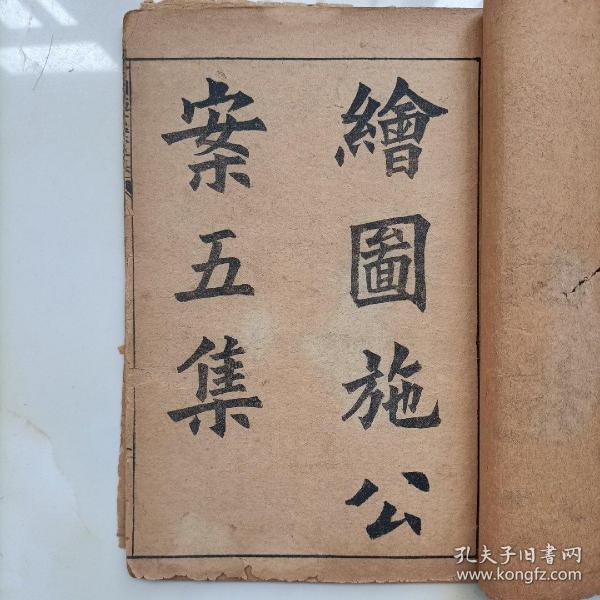 繪圖施公
案五集
孔夫子旧書网
www.kongfz.com